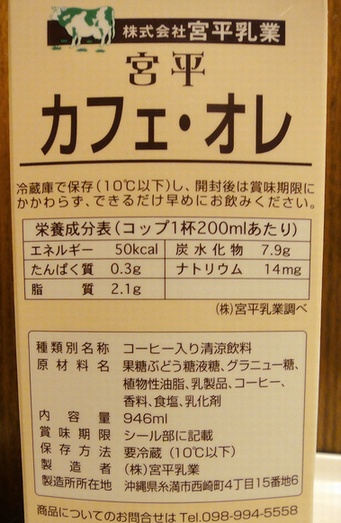 株式会社宮平乳業
宮平
カフェ・オレ
冷蔵庫で保存(10℃以下)し、開封後は賞味期限に
かかわらず、できるだけ早めにお飲みください。
栄養成分表(コップ1杯200mlあたり)
エネルギー 50kcal 炭水化物 7.9g
たんぱく質 0.3g ナトリウム 14mg
脂質 2.1g
(株)宮平乳業調べ
種類別名称 コーヒー入り清涼飲料
原材料名 果糖ぶどう糖液糖、グラニュー糖、
植物性油脂、乳製品、コーヒー、
香料、食塩、乳化剤
内容量 946ml
賞味期限 シール部に記載
保存方法 要冷蔵(10℃以下)
製造者 (株)宮平乳業
製造所所在地 沖縄県糸満市西崎町4丁目15番地6
商品についてのお問合せは Tel.098-994-5558